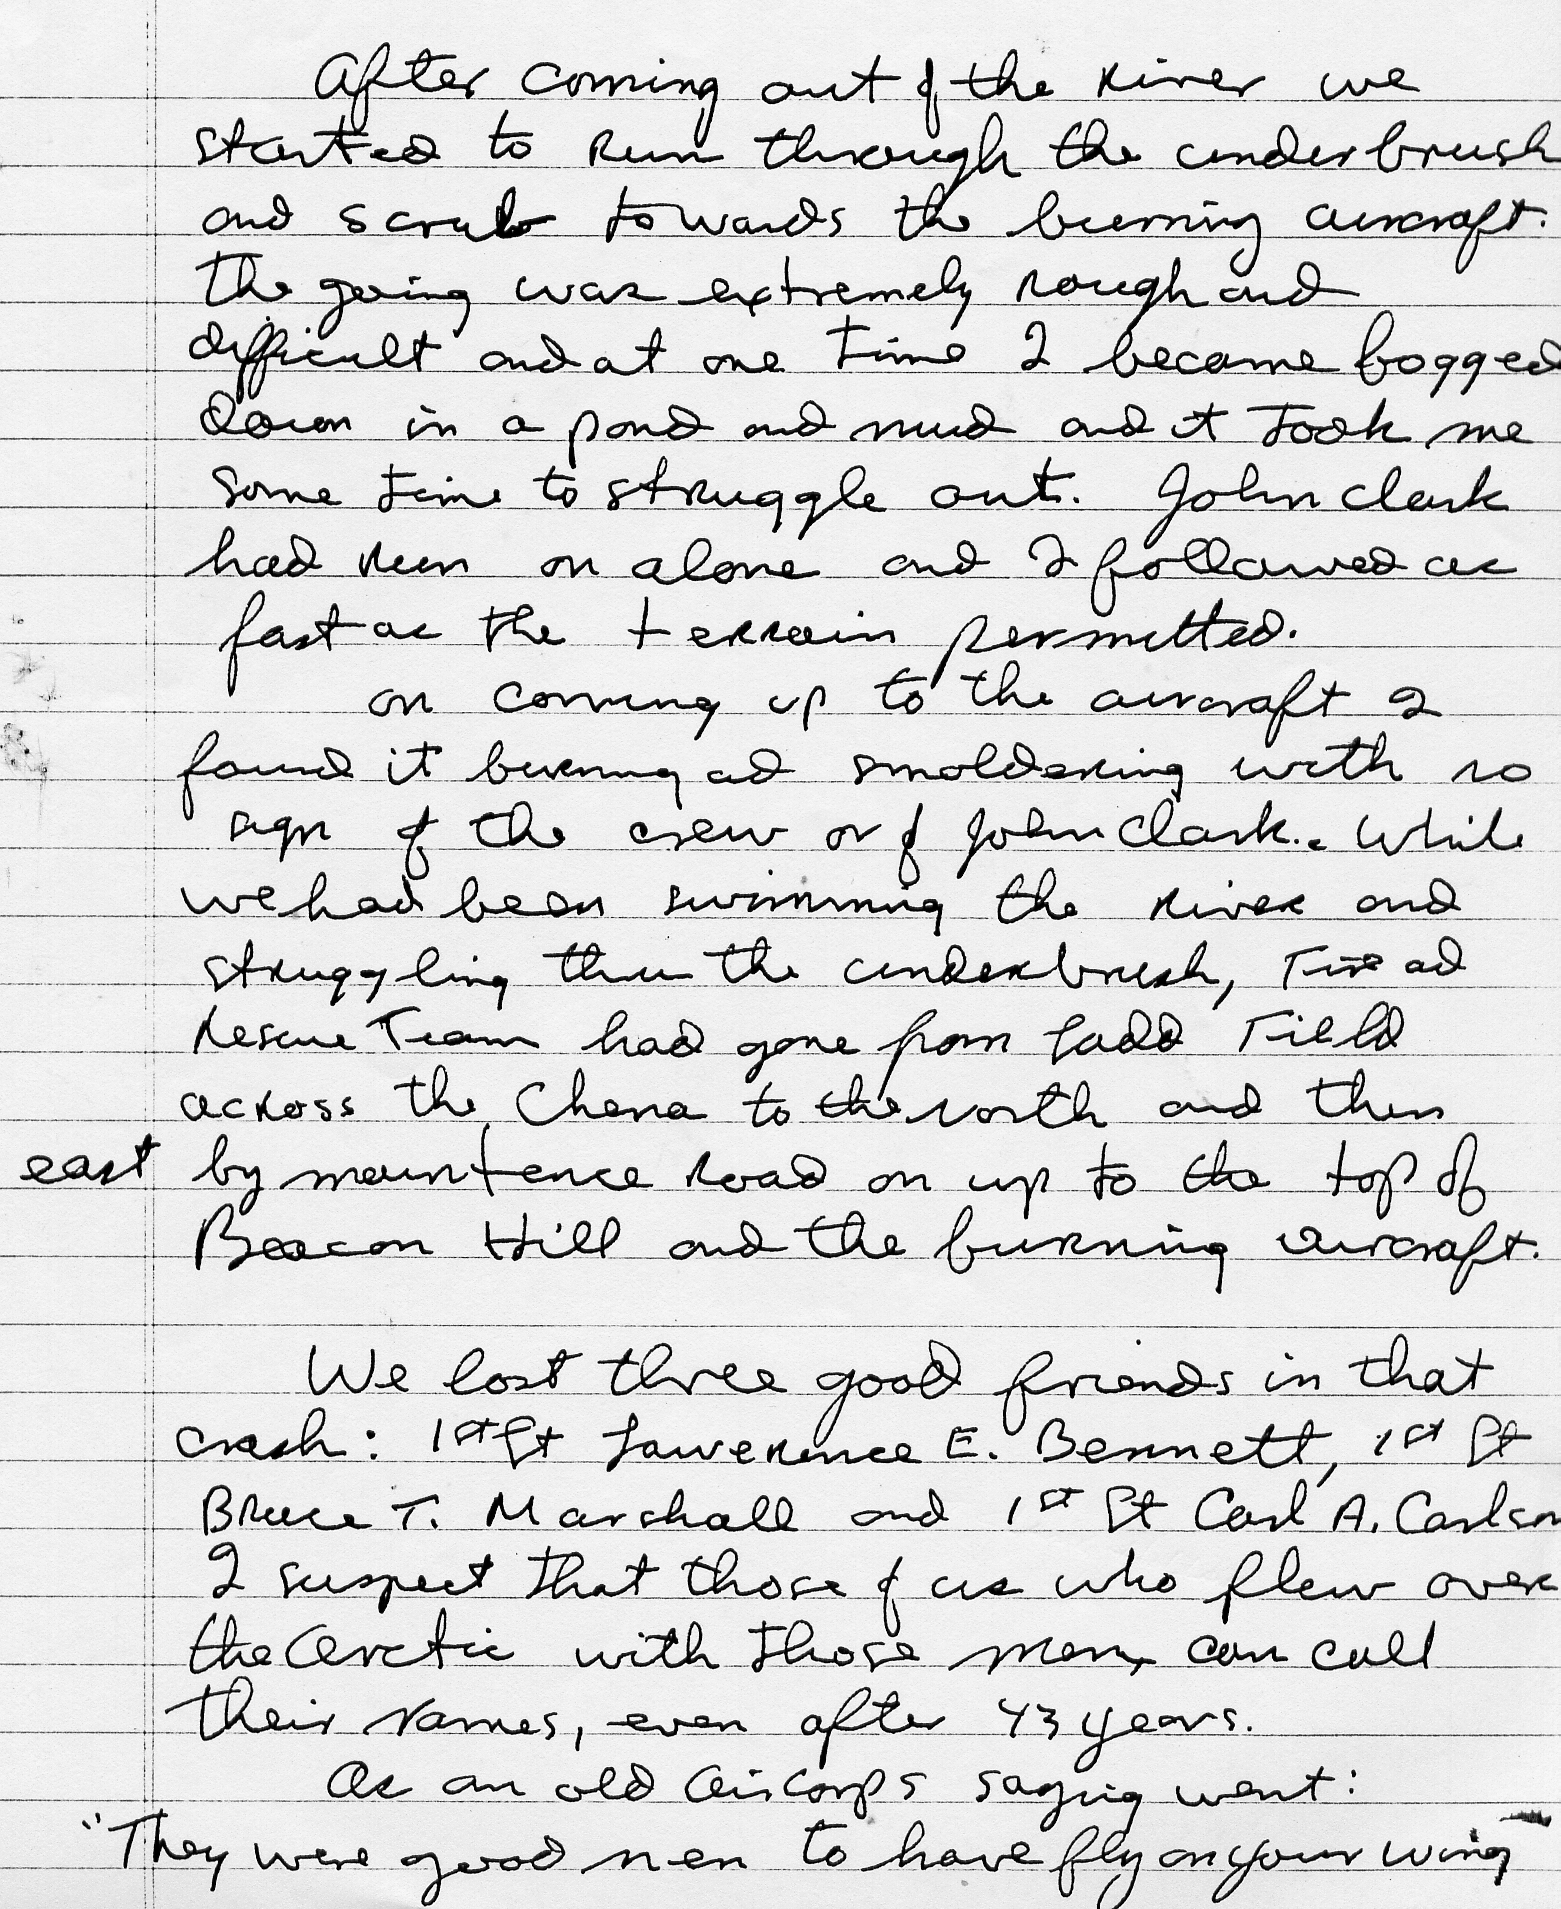 After coming out of the River we
started to Run through the underbrush
and scrub towards the burning aircraft.
The going was extremely rough and
difficult and at one time I became bogged
down in a pond and mud and it took me
some time to struggle out. John Clark
had Run on alone and I followed as
fast as the terrain permitted.
on coming up to the aircraft I
found it burning ad smoldering with no
sign of the crew or of John Clark. While
we had been swimming the River and
struggling thru the underbrush, Fire ad
Rescue Team had gone from Ladd Field
across the Chena to the north and then
east by maintence Road on up to the top of
Beacon Hill and the burning aircraft.
We lost three good friends in that
crash: 1st Lt Lawerence E. Bennett, 1st Lt
Bruce T. Marshall and 1st Lt Carl A. Carlson
I suspect that those of us who flew over
the Arctic with those men, can call
their names, even after 43 years.
As an old Air Corps saying went:
"They were good men to have fly on your wing